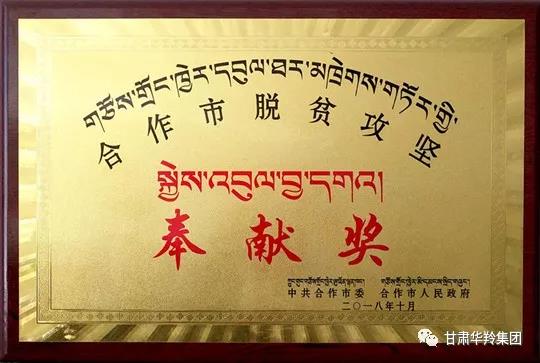 གཙོས་གྲོང་ཁྱེར་དབུལ་ཐར་མཁྲེགས་གཏོར་གྱི་
合作市脱贫攻坚
སྐྱེས་འབུལ་བྱ་དགའ།
奉献奖
中共合作市委 合作市人民政府
二〇一八年十月
甘肃华羚集团